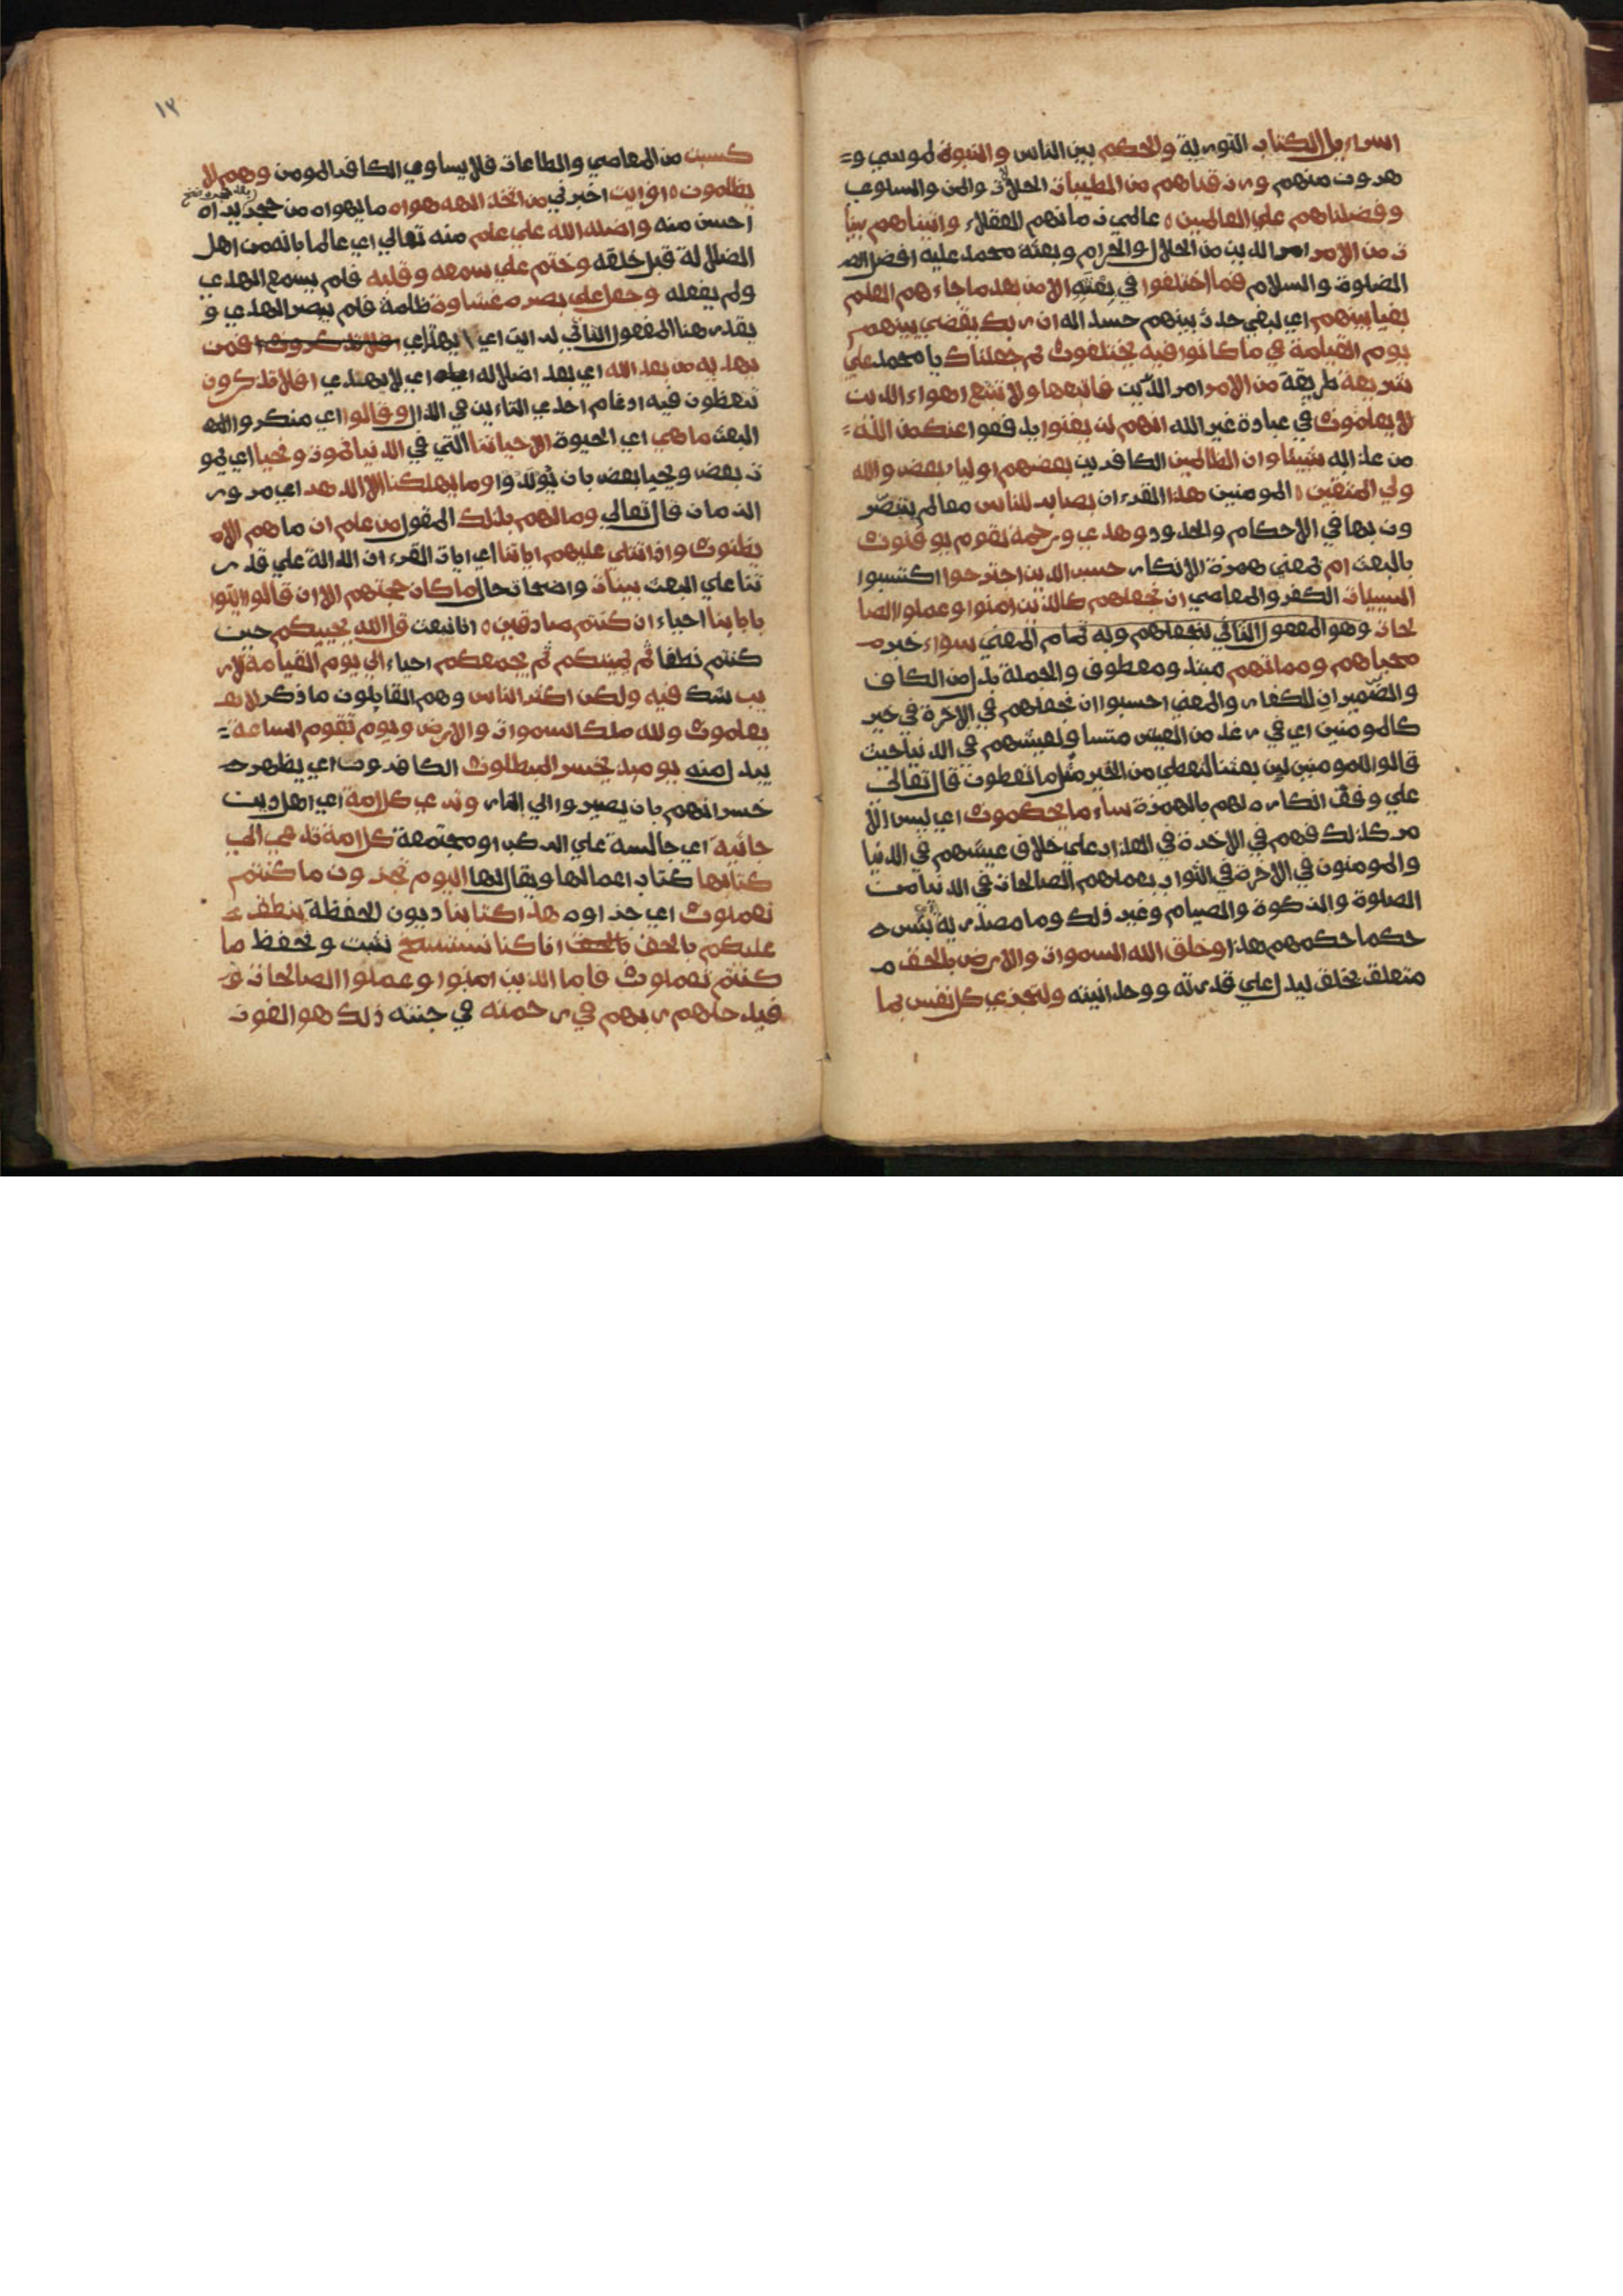 اسراءيل الكتاب التورية والحكم بين الناس والنبوة لموسي و
هرون منهم ورزقناهم من الطيبات الحلالات والمن والسلوي
وفضلناهم علي العالمين عالمي زمانهم العقلاء واتيناهم بينا
ت من الامر امر الدين من الحلال والحرام وبعثة محمد عليه افضل
الصلوة والسلام فما اختلفوا في بعثته الا من بعد ما جاءهم العلم
بغيا بينهم اي لبغي حدث بينهم حسدا له ان ربك يقضي بينهم
يوم القيامة في ما كانوا فيه يختلفون ثم جعلناك يا محمد علي
شريعة طريقة من الامر امر الدين فاتبعها ولا تتبع اهواء الذين
لا يعلمون في عبادة غير الله انهم لن يغنوا يدفعوا عنك من الله
من عذابه شيئا وان الظالمين الكافرين بعضهم اولياء بعض والله
ولي المتقين المومنين هذا القرءان بصاير للناس معالم يتبصر
ون بها في الاحكام والحدود وهدي ورحمة لقوم يوقنون
بالبعث ام بمعني همزة الانكار حسب الذين اجترحوا اكتسبوا
السييات الكفر والمعاصي ان نجعلهم كالذين امنوا وعملوا الصا
لحات وهو المفعول الثاني لنجعلهم وبه تمام المعني سواء خبر
محياهم ومماتهم مبتدا ومعطوف والجملة بدل من الكاف
والضميران للكفار والمعني احسبوا ان نجعلهم في الاخرة في خير
كالمومنين اي في رغد من العيش متساو لعيشهم في الدنيا حيث
قالوا للمومنين لين بعثنا لنعطي من الخير مثل ما تعطون قال تعالي
علي وفق انكاره لهم بالهمزة ساء ما يحكمون اي ليس الا
مر كذلك فهم في الاخرة في العذاب علي خلاف عيشهم في الدنيا
والمومنون في الاخرة في الثواب بعملهم الصالحات في الدنيا من
الصلوة والزكوة والصيام وغير ذلك وما مصدرية اي بئس
حكما حكمهم هذا وخلق الله السموات والارض بالحق
متعلق بخلق ليدل علي قدرته ووحدانيته ولتجزي كل نفس بما
١٣
كسبت من المعاصي والطاعات فلا يساوي الكافر المومن وهم لا
يظلمون افرايت اخبرني من اتخذ الهه هواه ما يهواه من حجر يراه
احسن منه واضله الله علي علم منه تعالي اي عالما بانه من اهل
الضلالة قبل خلقه وختم علي سمعه وقلبه فلم يسمع الهدي
ولم يعقله وجعل علي بصره غشاوة ظلمة فلم يبصر الهدي و
يقدر هنا المفعول الثاني لرايت اي ايهتدي افلا تذكرون فمن
يهديه من بعد الله اي بعد اضلاله اياه اي لا يهتدي افلا تذكرون
تتعظون فيه ادغام احدي التاءين في الذال وقالوا اي منكروا
البعث ما هي اي الحيوة الا حياتنا التي في الدنيا نموت ونحيا اي يمو
ت بعض ويحيا بعض بان يولدوا وما يهلكنا الا الدهر اي مرور
الزمان قال تعالي وما لهم بذلك المقول من علم ان ما هم الا
يظنون واذا تتلي عليهم اياتنا اي ايات القرءان الدالة علي قدر
تنا علي البعث بينات واضحات حال ما كان حجتهم الا ان قالوا ايتوا
بابائنا احياء ان كنتم صادقين انا نبعث قل الله يحييكم حين
كنتم نطفا ثم يميتكم ثم يجمعكم احياء الي يوم القيامة لا ر
يب شك فيه ولكن اكثر الناس وهم القايلون ما ذكر لا
يعلمون ولله ملك السموات والارض ويوم تقوم الساعة
يبدل منه يوميذ يخسر المبطلون الكافرون اي يظهر
خسرانهم بان يصيروا الي النار وتري كل امة اي اهل دين
جاثية اي جالسة علي الركب او مجتمعة كل امة تدعي الي
كتابها كتاب اعمالها ويقال لها اليوم تجزون ما كنتم
تعملون اي جزاوه هذا كتابنا ديون الحفظة ينطق
عليكم بالحق بالحق انا كنا نستنسخ نثبت ونحفظ ما
كنتم تعملون فاما الذين امنوا وعملوا الصالحات
فيدخلهم ربهم في رحمته في جنته ذلك هو الفوز